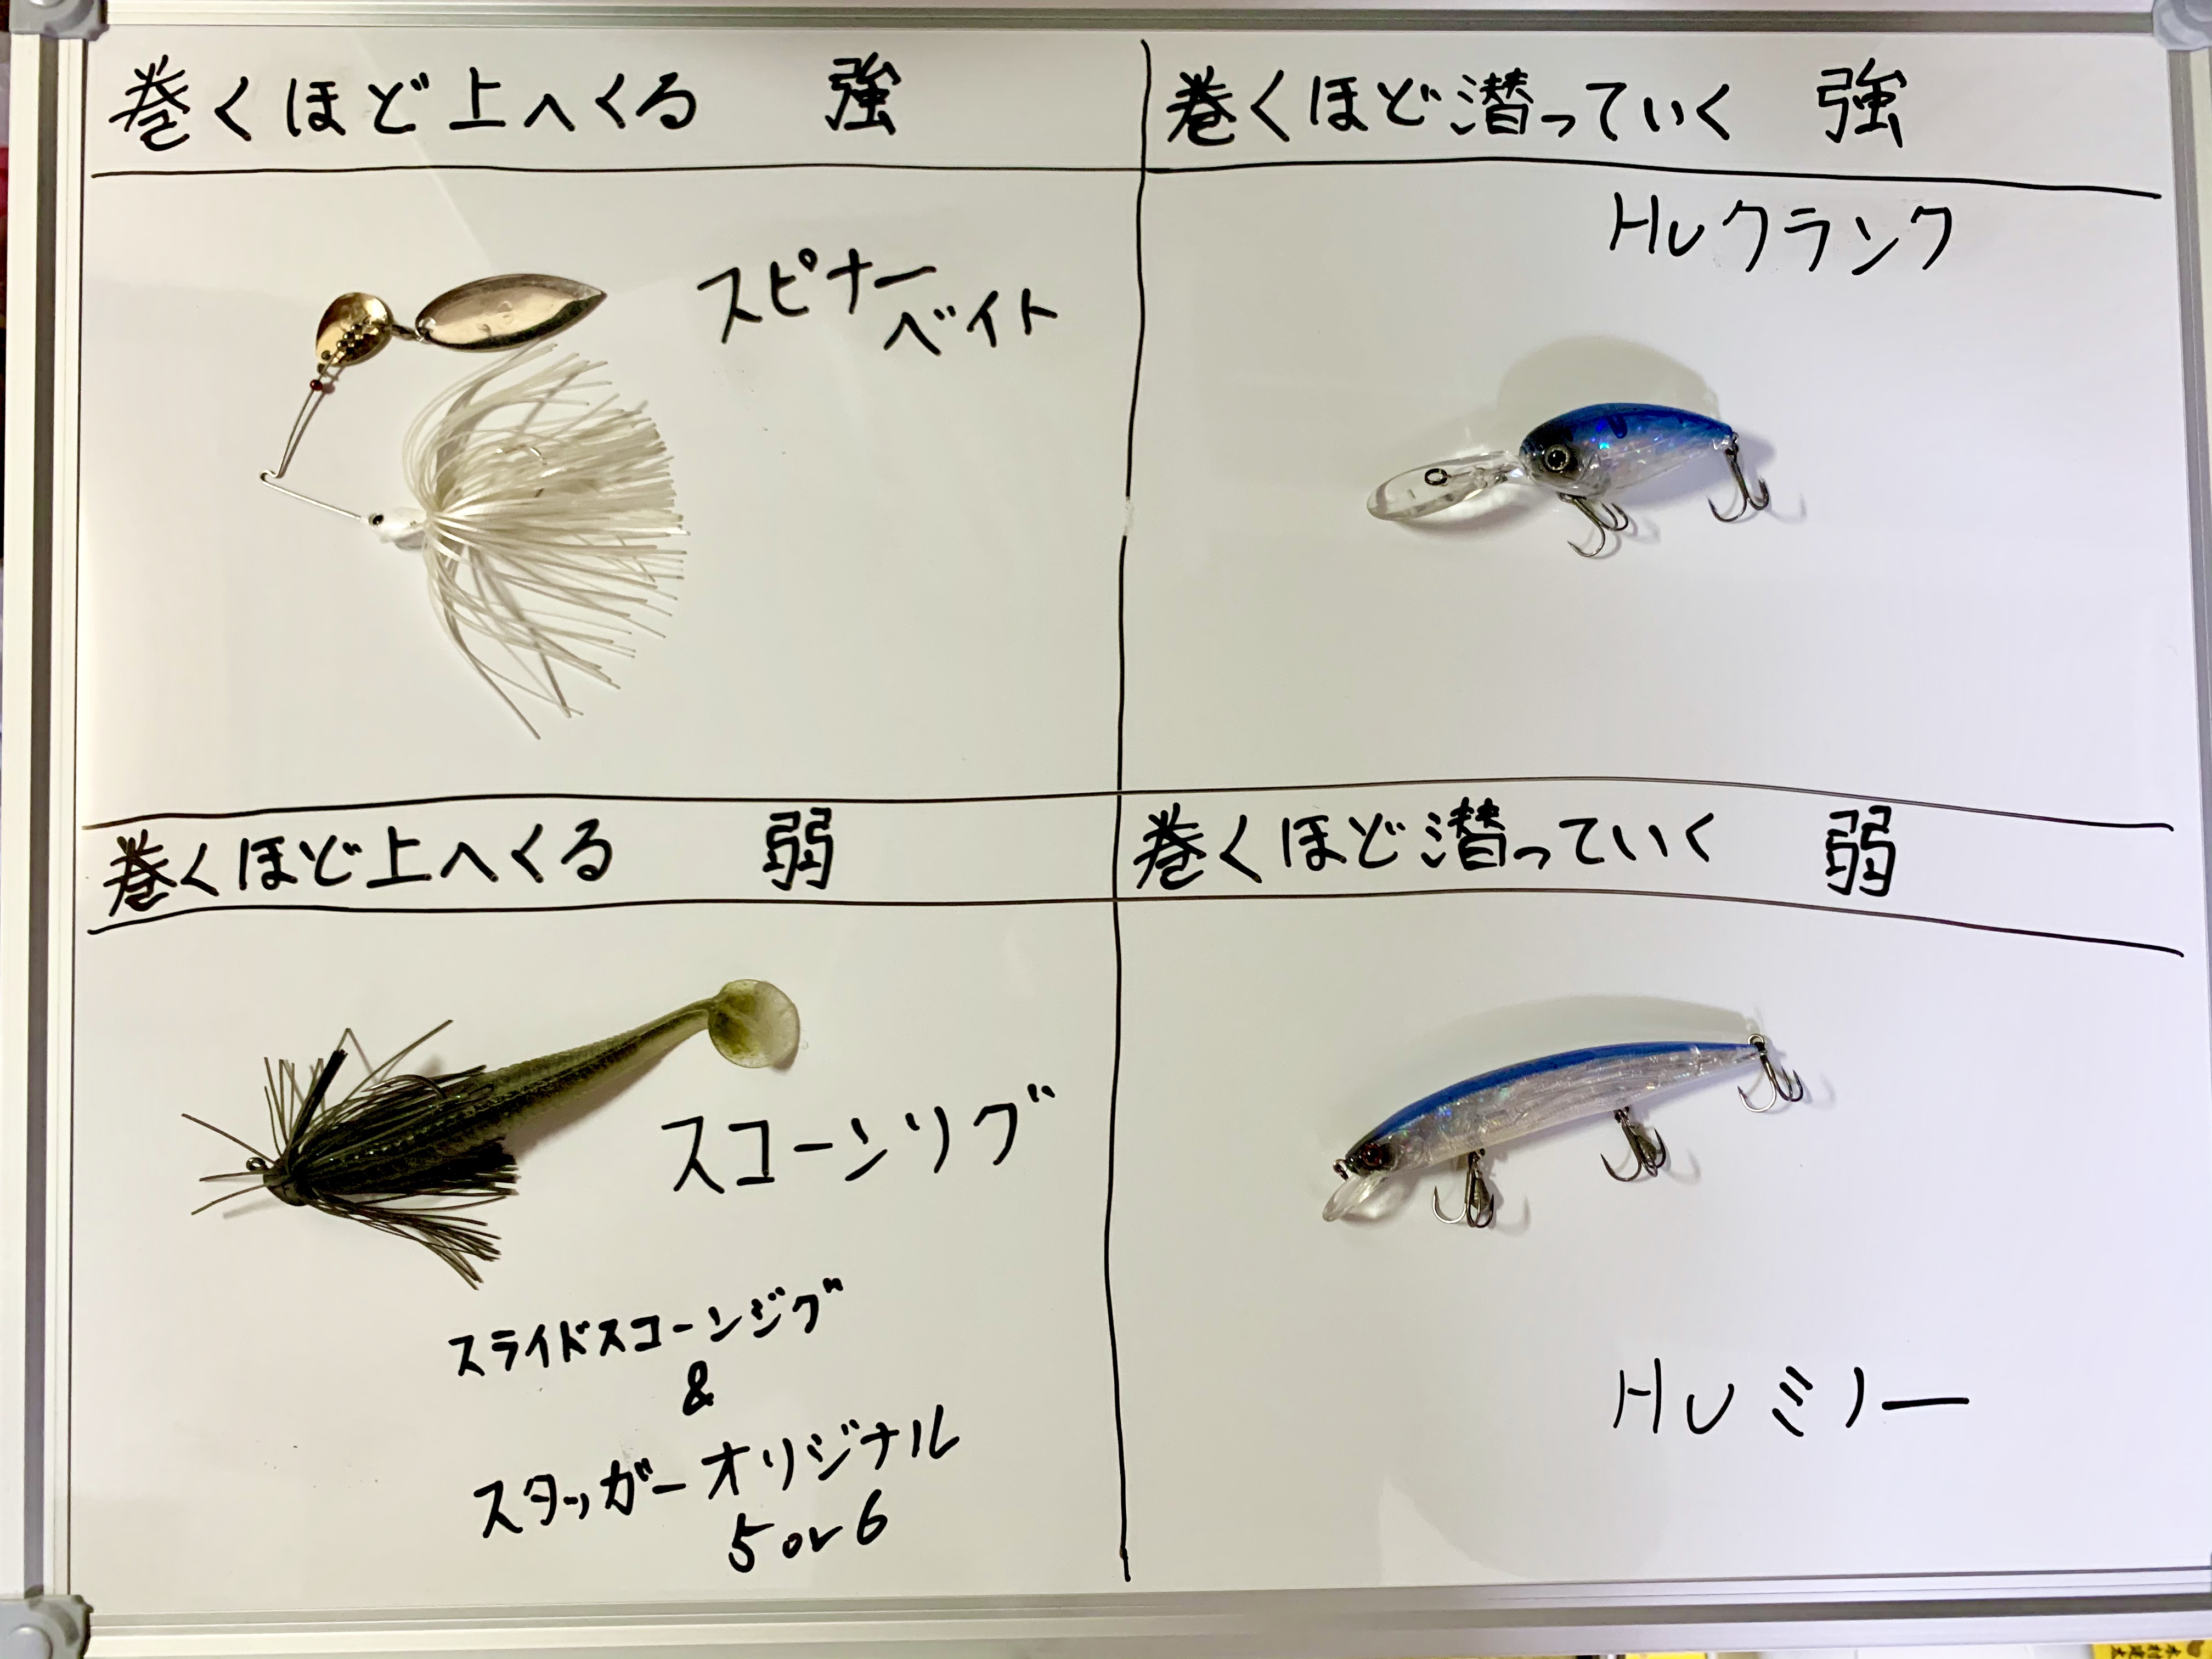 巻くほど上へくる 強
巻くほど潜っていく 強
スピナー
ベイト
HUクランク
巻くほど上へくる 弱
巻くほど潜っていく 弱
スコーンリグ
スライドスコーンジグ
&
スタッガーオリジナル
5or6
HUミノー